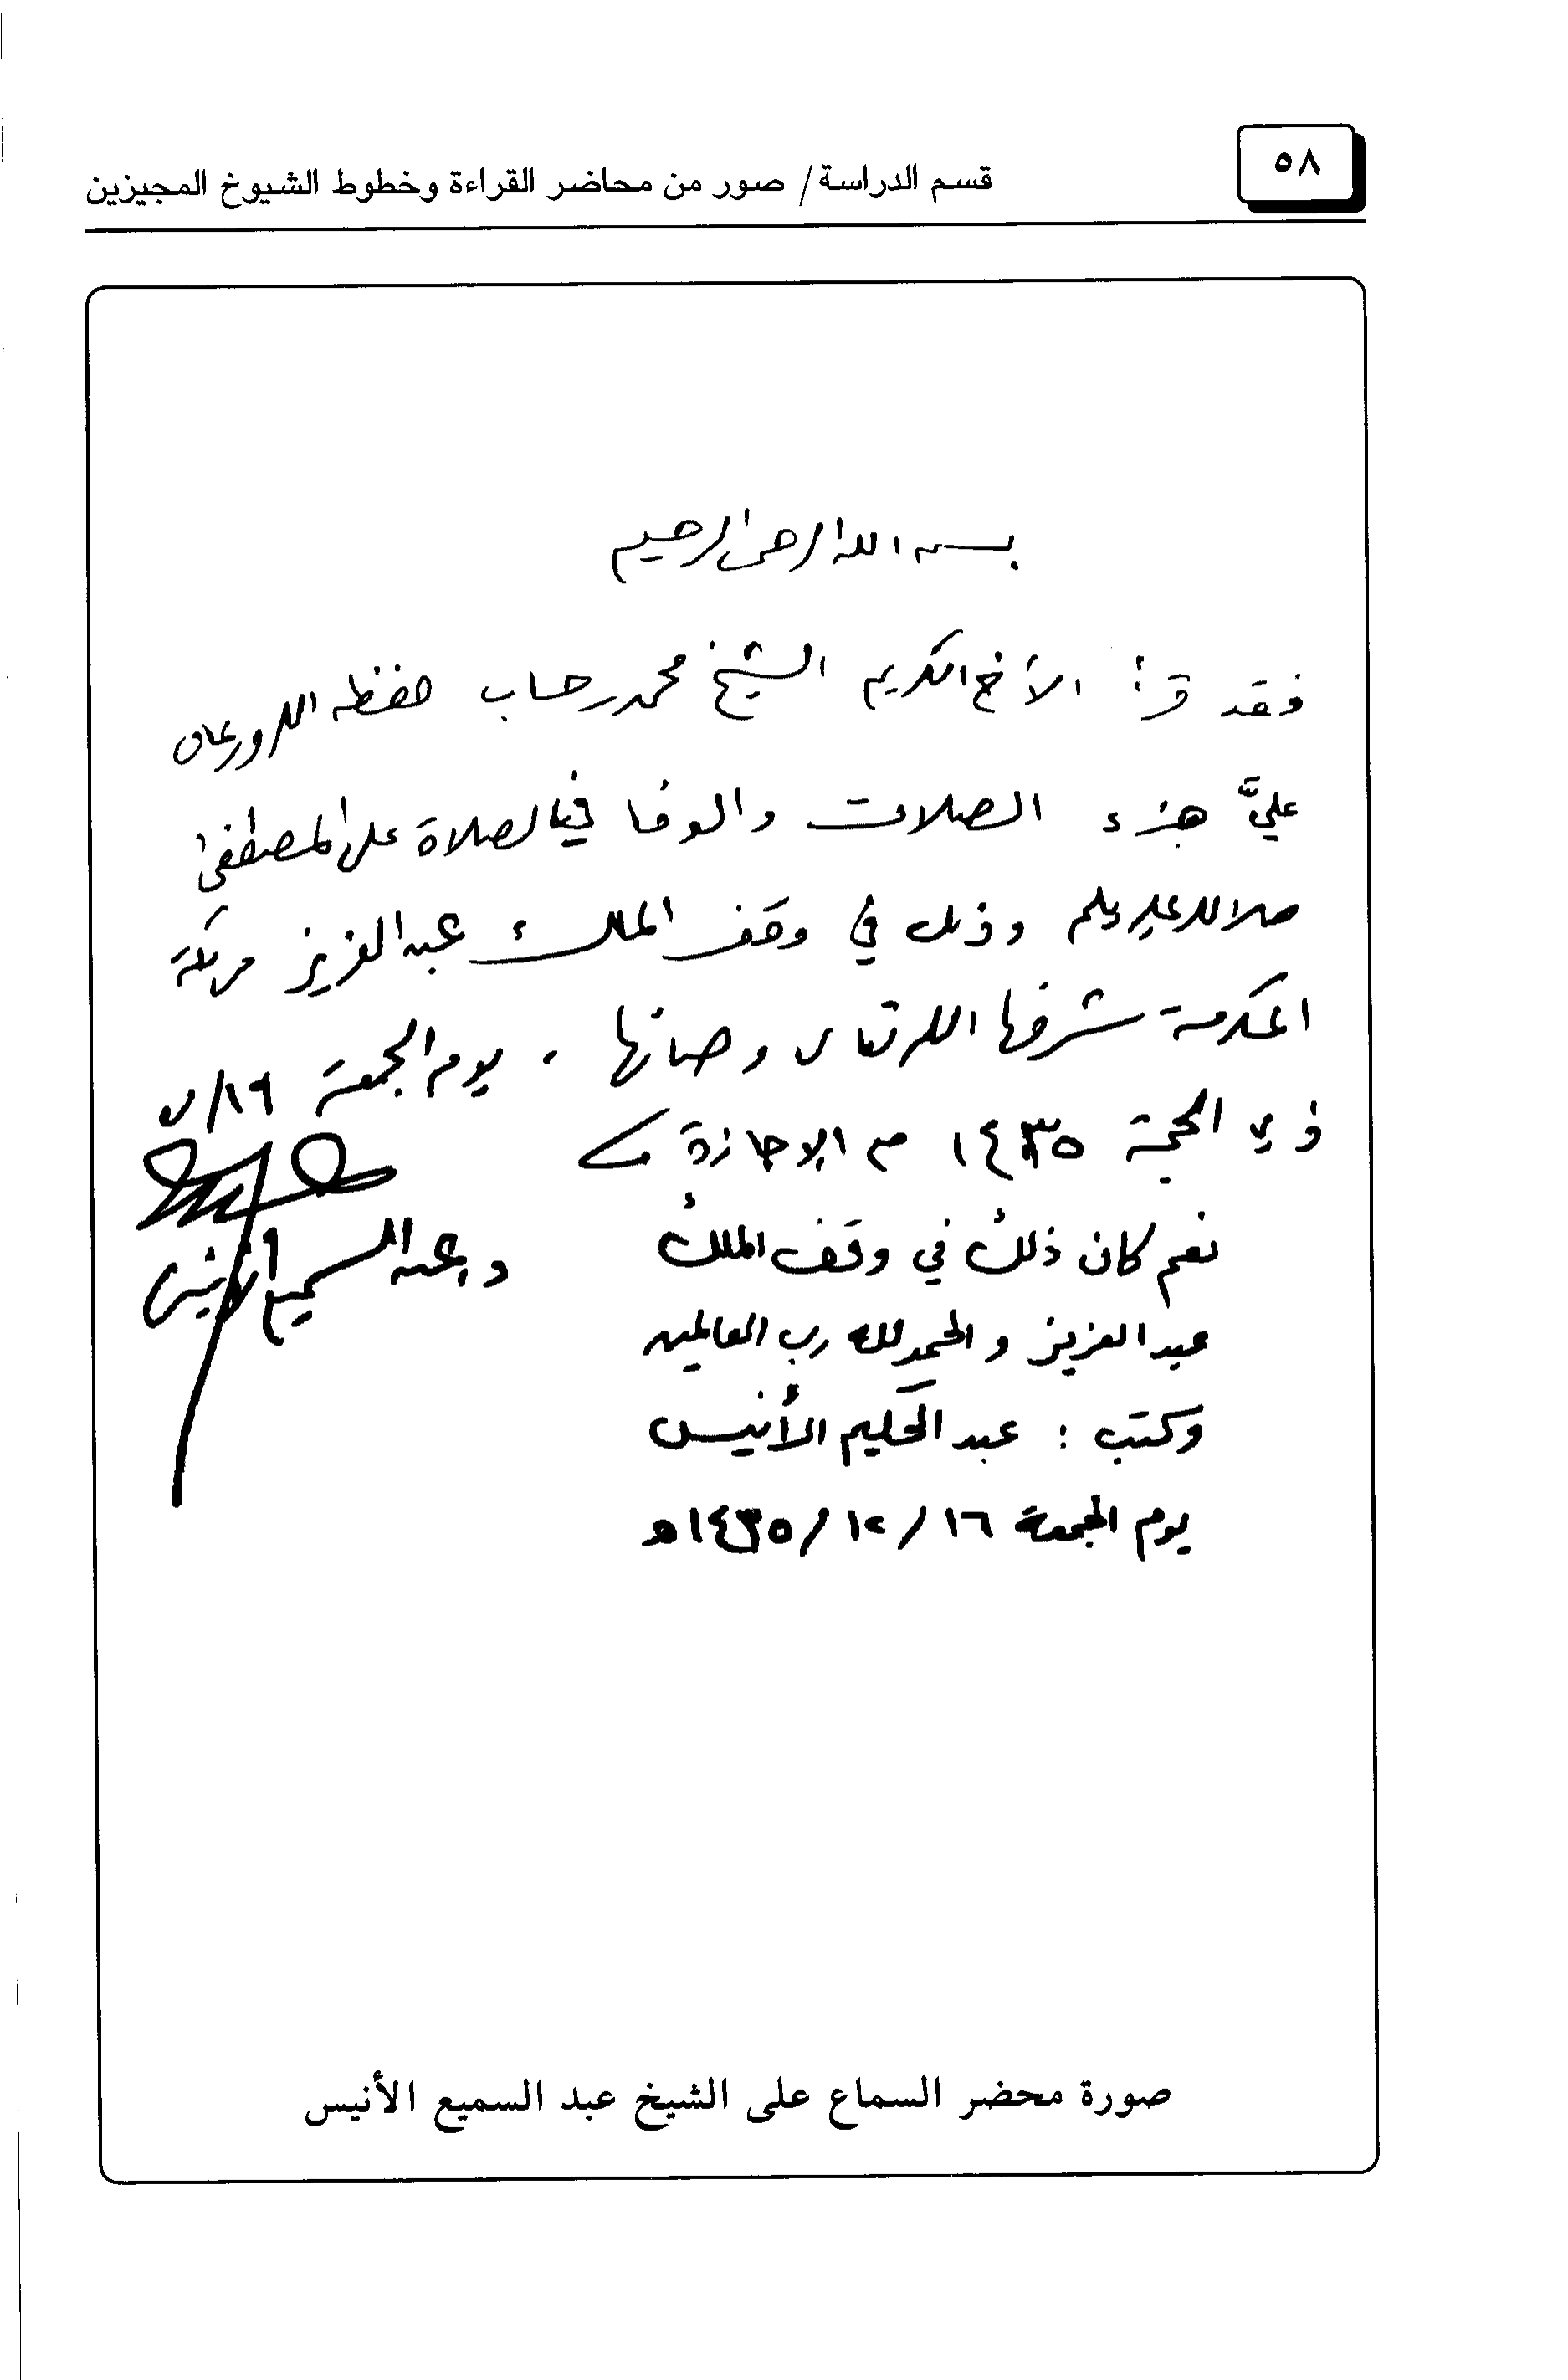 ٥٨
قسم الدراسة/ صور من محاضر القراءة وخطوط الشيوخ المجيزين
بسم الله الرحمن الرحيم
فقد قرأ الأخ الكريم الشيخ محمد رحاب حفظه الله ورعاه
عليَّ هذه الصلات والوفا في الصلاة على المصطفى
صلى الله عليه وسلم وذلك في وقف الملك عبد العزيز مكة
المكرمة شرفها الله تعالى وصانها . يوم الجمعة ١٦/
ذي الحجة ١٤٣٥ مع الإجازة
د. عبد السميع الأنيس
نعم كان ذلك في وقف الملك
عبد العزيز والحمد لله رب العالمين
وكتب : عبد الحكيم الأنيس
يوم الجمعة ١٦/١٢/١٤٣٥هـ
صورة محضر السماع على الشيخ عبد السميع الأنيس